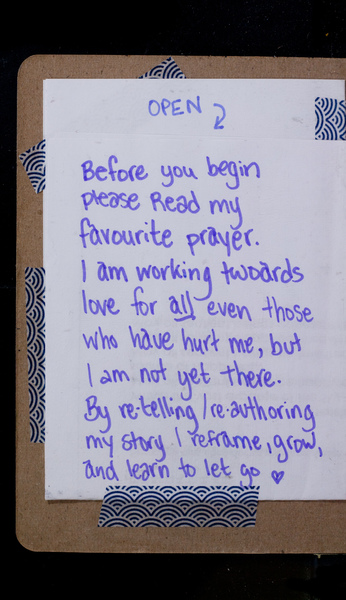 OPEN
Before you begin
please Read my
favourite prayer.
I am working twoards
love for all even those
who have hurt me, but
I am not yet there.
By re-telling/re-authoring
my story I reframe, grow,
and learn to let go ♡